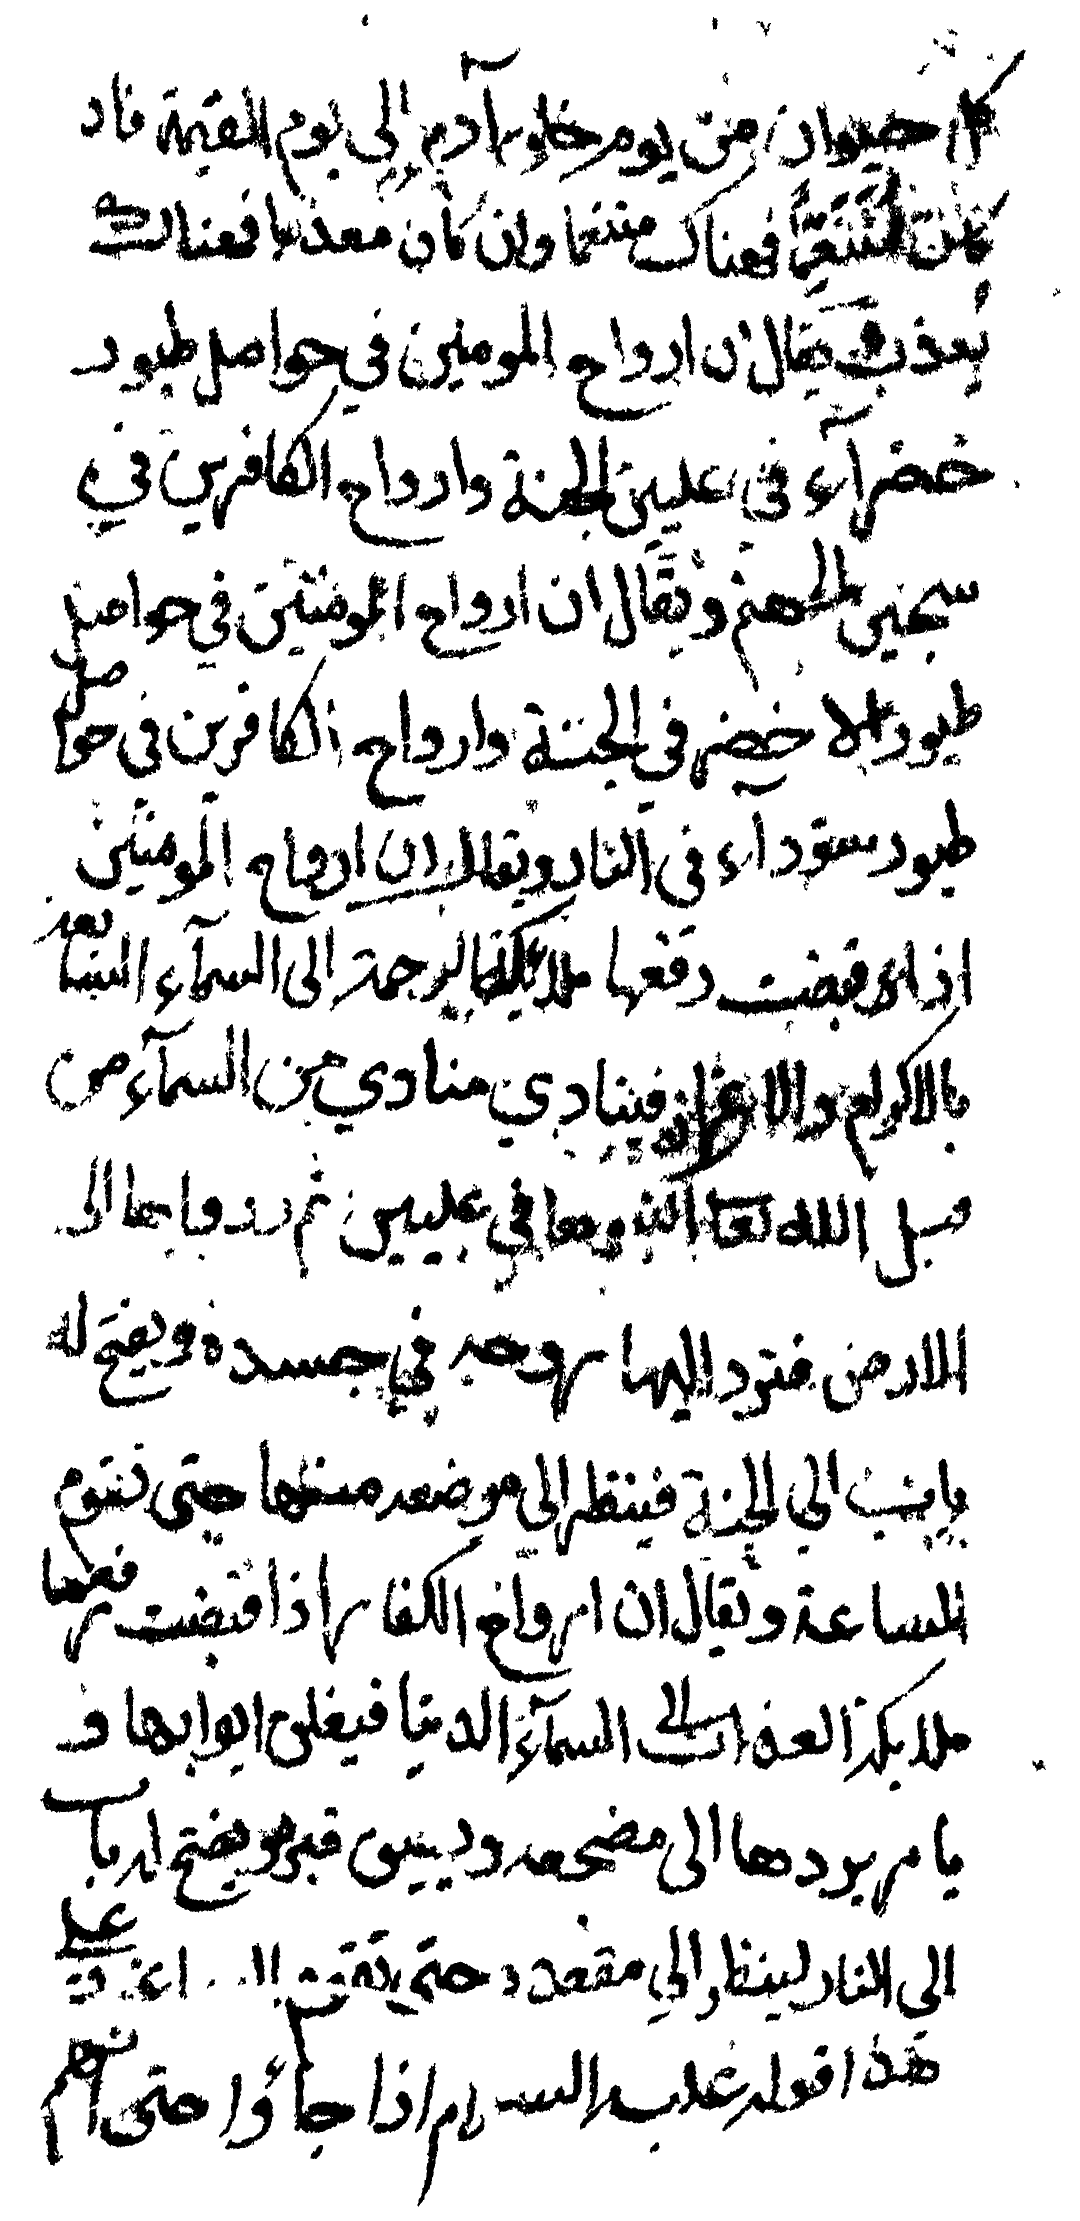 كل حيوان من يوم خلق آدم إلى يوم القيمة فاد
كانت متنعما فهناك متنعما وان كان معذبا فهناك
يعذب ويقال ان ارواح المومنين في حواصل طيور
خضرآء في عليين الجنة وارواح الكافرين في
سجين الجهنم ويقال ان ارواح المومنين في حواصل
طيور الاخضر في الجنة وارواح الكافرين في حواصل
طيور سودآء في النار ويقال ان ارواح المومنين
اذا قبضت رفعها ملائكة الرحمة الى السمآء السابعة
بالاكرام والاعزاز فينادي منادي من السمآء من
قبل الله تعا اكتبوها في عليين ثم ردوا بها الى
الارض فترد اليها روحه في جسده ويفتح له
باب الى الجنة فينظر الي موضعه منها حتى تقوم
الساعة ويقال ان ارواح الكفار اذا قبضت رفعها
ملائكة العذاب الى السمآء الدنيا فيغلق ابوابها و
يامر بردها الى مضجعه ويضيق قبره ويفتح له باب
الى النار لينظر الي مقعده حتى تقوم الساعة وعلى
هذا قوله عليه السلام اذا جاؤا حتى انهم